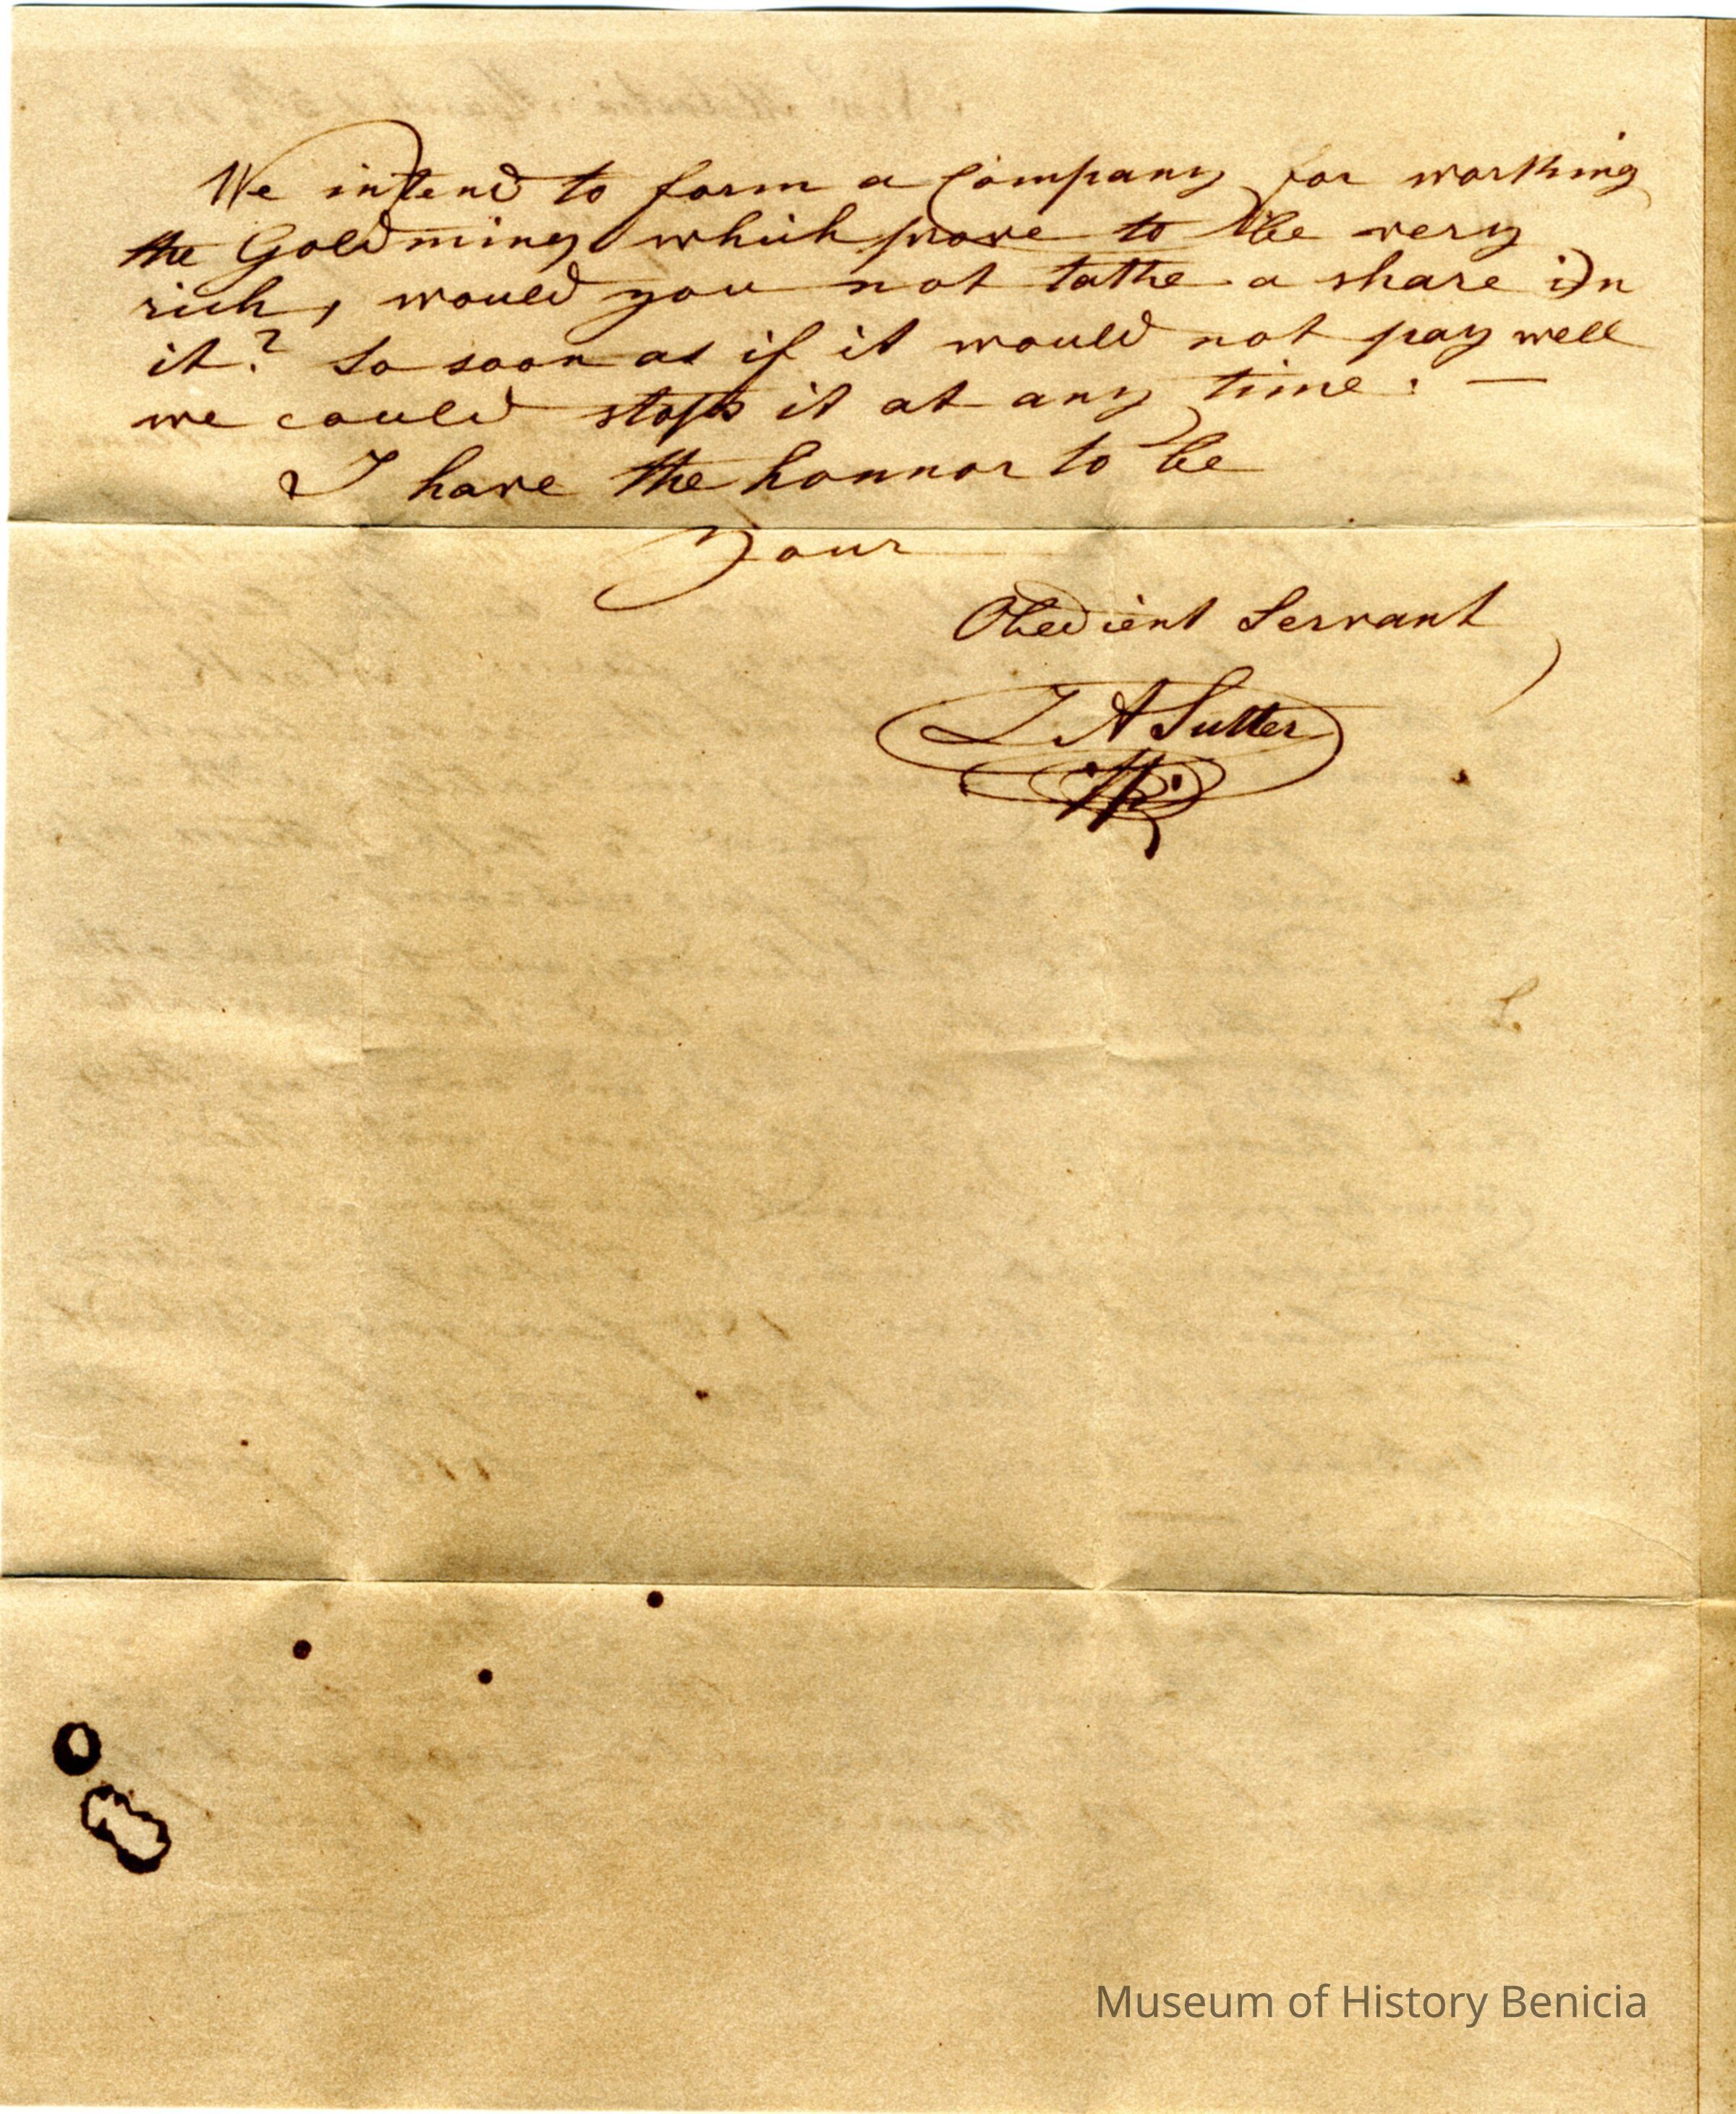 We intend to form a Company for working
the Goldmines which prove to be very
rich, would you not take a share in
it? So soon as if it would not pay well
we could stop it at any time. —
I have the honnor to be
Your
Obedient Servant
J A Sutter
Museum of History Benicia